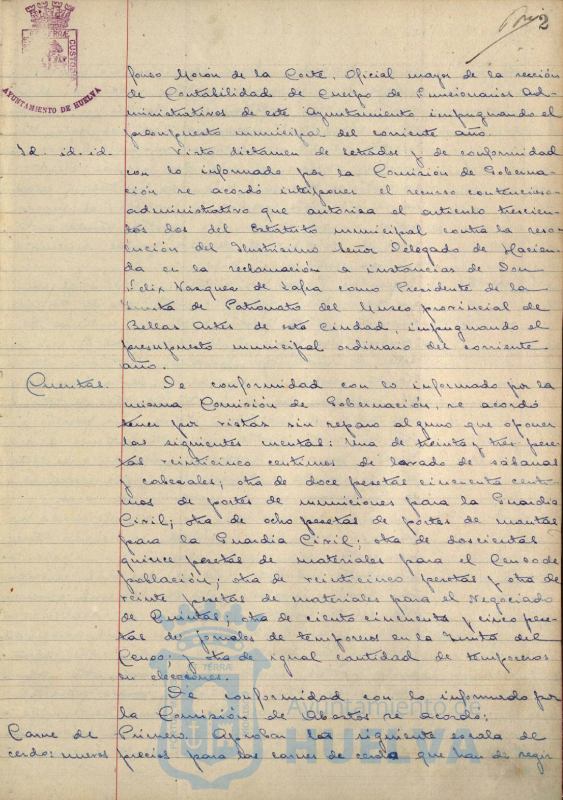 2
AYUNTAMIENTO DE HUELVA
fonso Morón de la Corte, Oficial mayor de la sección
de Contabilidad de Cuerpo de Funcionarios Ad-
ministrativos de este Ayuntamiento impugnando el
presupuesto municipal del corriente año.
Id. id. id. Visto dictamen de Letrados y de conformidad
con lo informado por la Comisión de Goberna-
ción se acordó interponer el recurso contencioso-
administrativo que autoriza el artículo trescien-
tos dos del Estatuto municipal contra la reso-
lución del Ilustrísimo Señor Delegado de Hacien-
da en la reclamación a instancias de Don
Félix Vazquez de Zafra como Presidente de la
Junta de Patronato del Museo provincial de
Bellas Artes de esta Ciudad, impugnando el
presupuesto municipal ordinario del corriente
año.
Cuentas. De conformidad con lo informado por la
misma Comisión de Gobernación, se acordó
tener por vistas sin reparo alguno que oponer
las siguientes cuentas: Una de treinta y tres pese-
tas veinticinco centimos de lavado de sabanas
y cabezales; otra de doce pesetas cincuenta centi-
mos de portes de municiones para la Guardia
Civil; otra de ocho pesetas de portes de mantas
para la Guardia Civil; otra de doscientas
quince pesetas de materiales para el Censo de
población; otra de veinticinco pesetas y otra de
veinte pesetas de materiales para el Negociado
de Quintas; otra de ciento cincuenta y cinco pese-
tas de jornales de temporeros en la Junta del
Censo; y otra de igual cantidad de temporeros
en elecciones.
De conformidad con lo informado por
la Comisión de Abastos se acordó:
Carne de Primero. Aprobar la siguiente escala de
cerdo: nuevos precios para las carnes de cerdo que han de regir
Ayuntamiento de
HUELVA